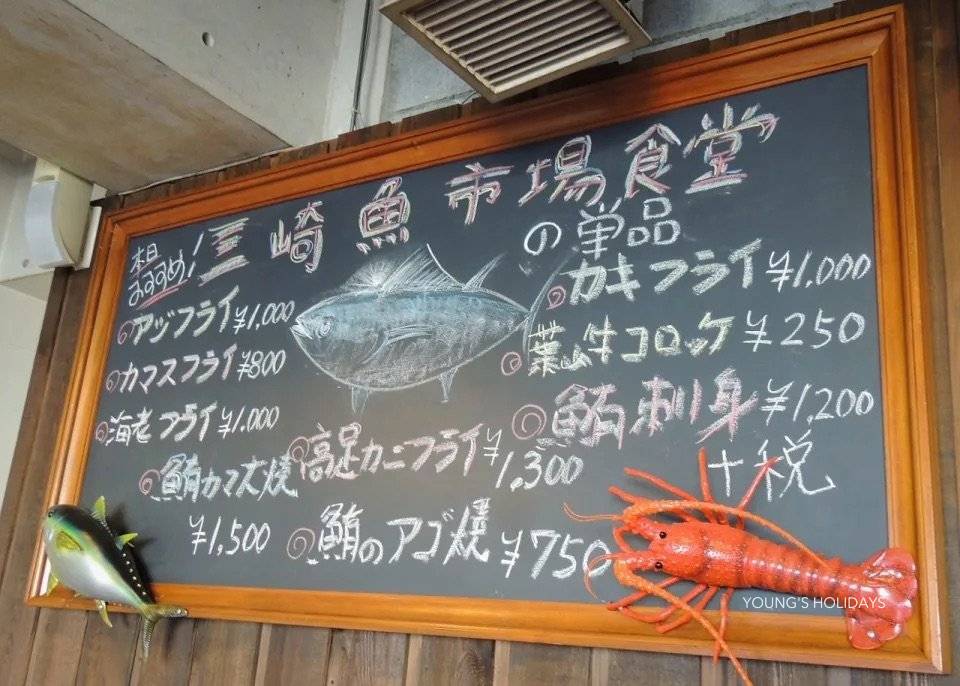 本日
おすすめ!
三崎魚市場食堂
の単品
アジフライ ¥1,000
カマスフライ ¥800
海老フライ ¥1,000
鮪カマ大焼
¥1,500
高足カニフライ ¥1,300
鮪のアゴ焼 ¥750
カキフライ ¥1,000
葉山牛コロッケ ¥250
鮪刺身 ¥1,200
+税
YOUNG'S HOLIDAYS